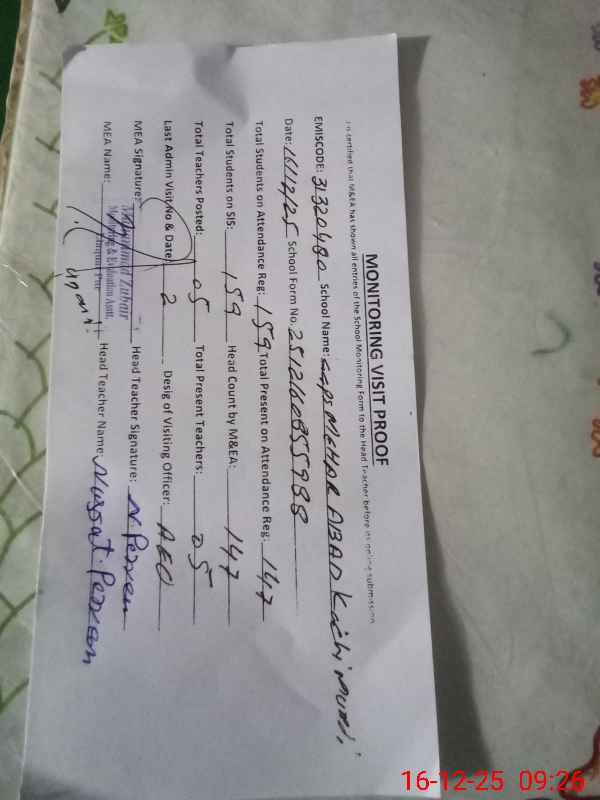 MONITORING VISIT PROOF
It is certified that M&EA has shown all entries of the School Monitoring Form to the Head Teacher before its online submission
EMISCODE: 31320480 School Name: GGPS MEHAR ABAD Kachi
Date: 16/12/25 School Form No. 2512160855988
Total Students on Attendance Reg: 159 Total Present on Attendance Reg: 147
Total Students on SIS: 159 Head Count by M&EA: 147
Total Teachers Posted: 05 Total Present Teachers: 05
Last Admin Visit No & Date 2 Desig of Visiting Officer: AEO
MEA Signature: Head Teacher Signature: N. Perveen
Muhammad Zubair
Monitoring & Evaluation Asstt
MEA Name: Head Teacher Name: Nussat. Perveen
16-12-25 09:26